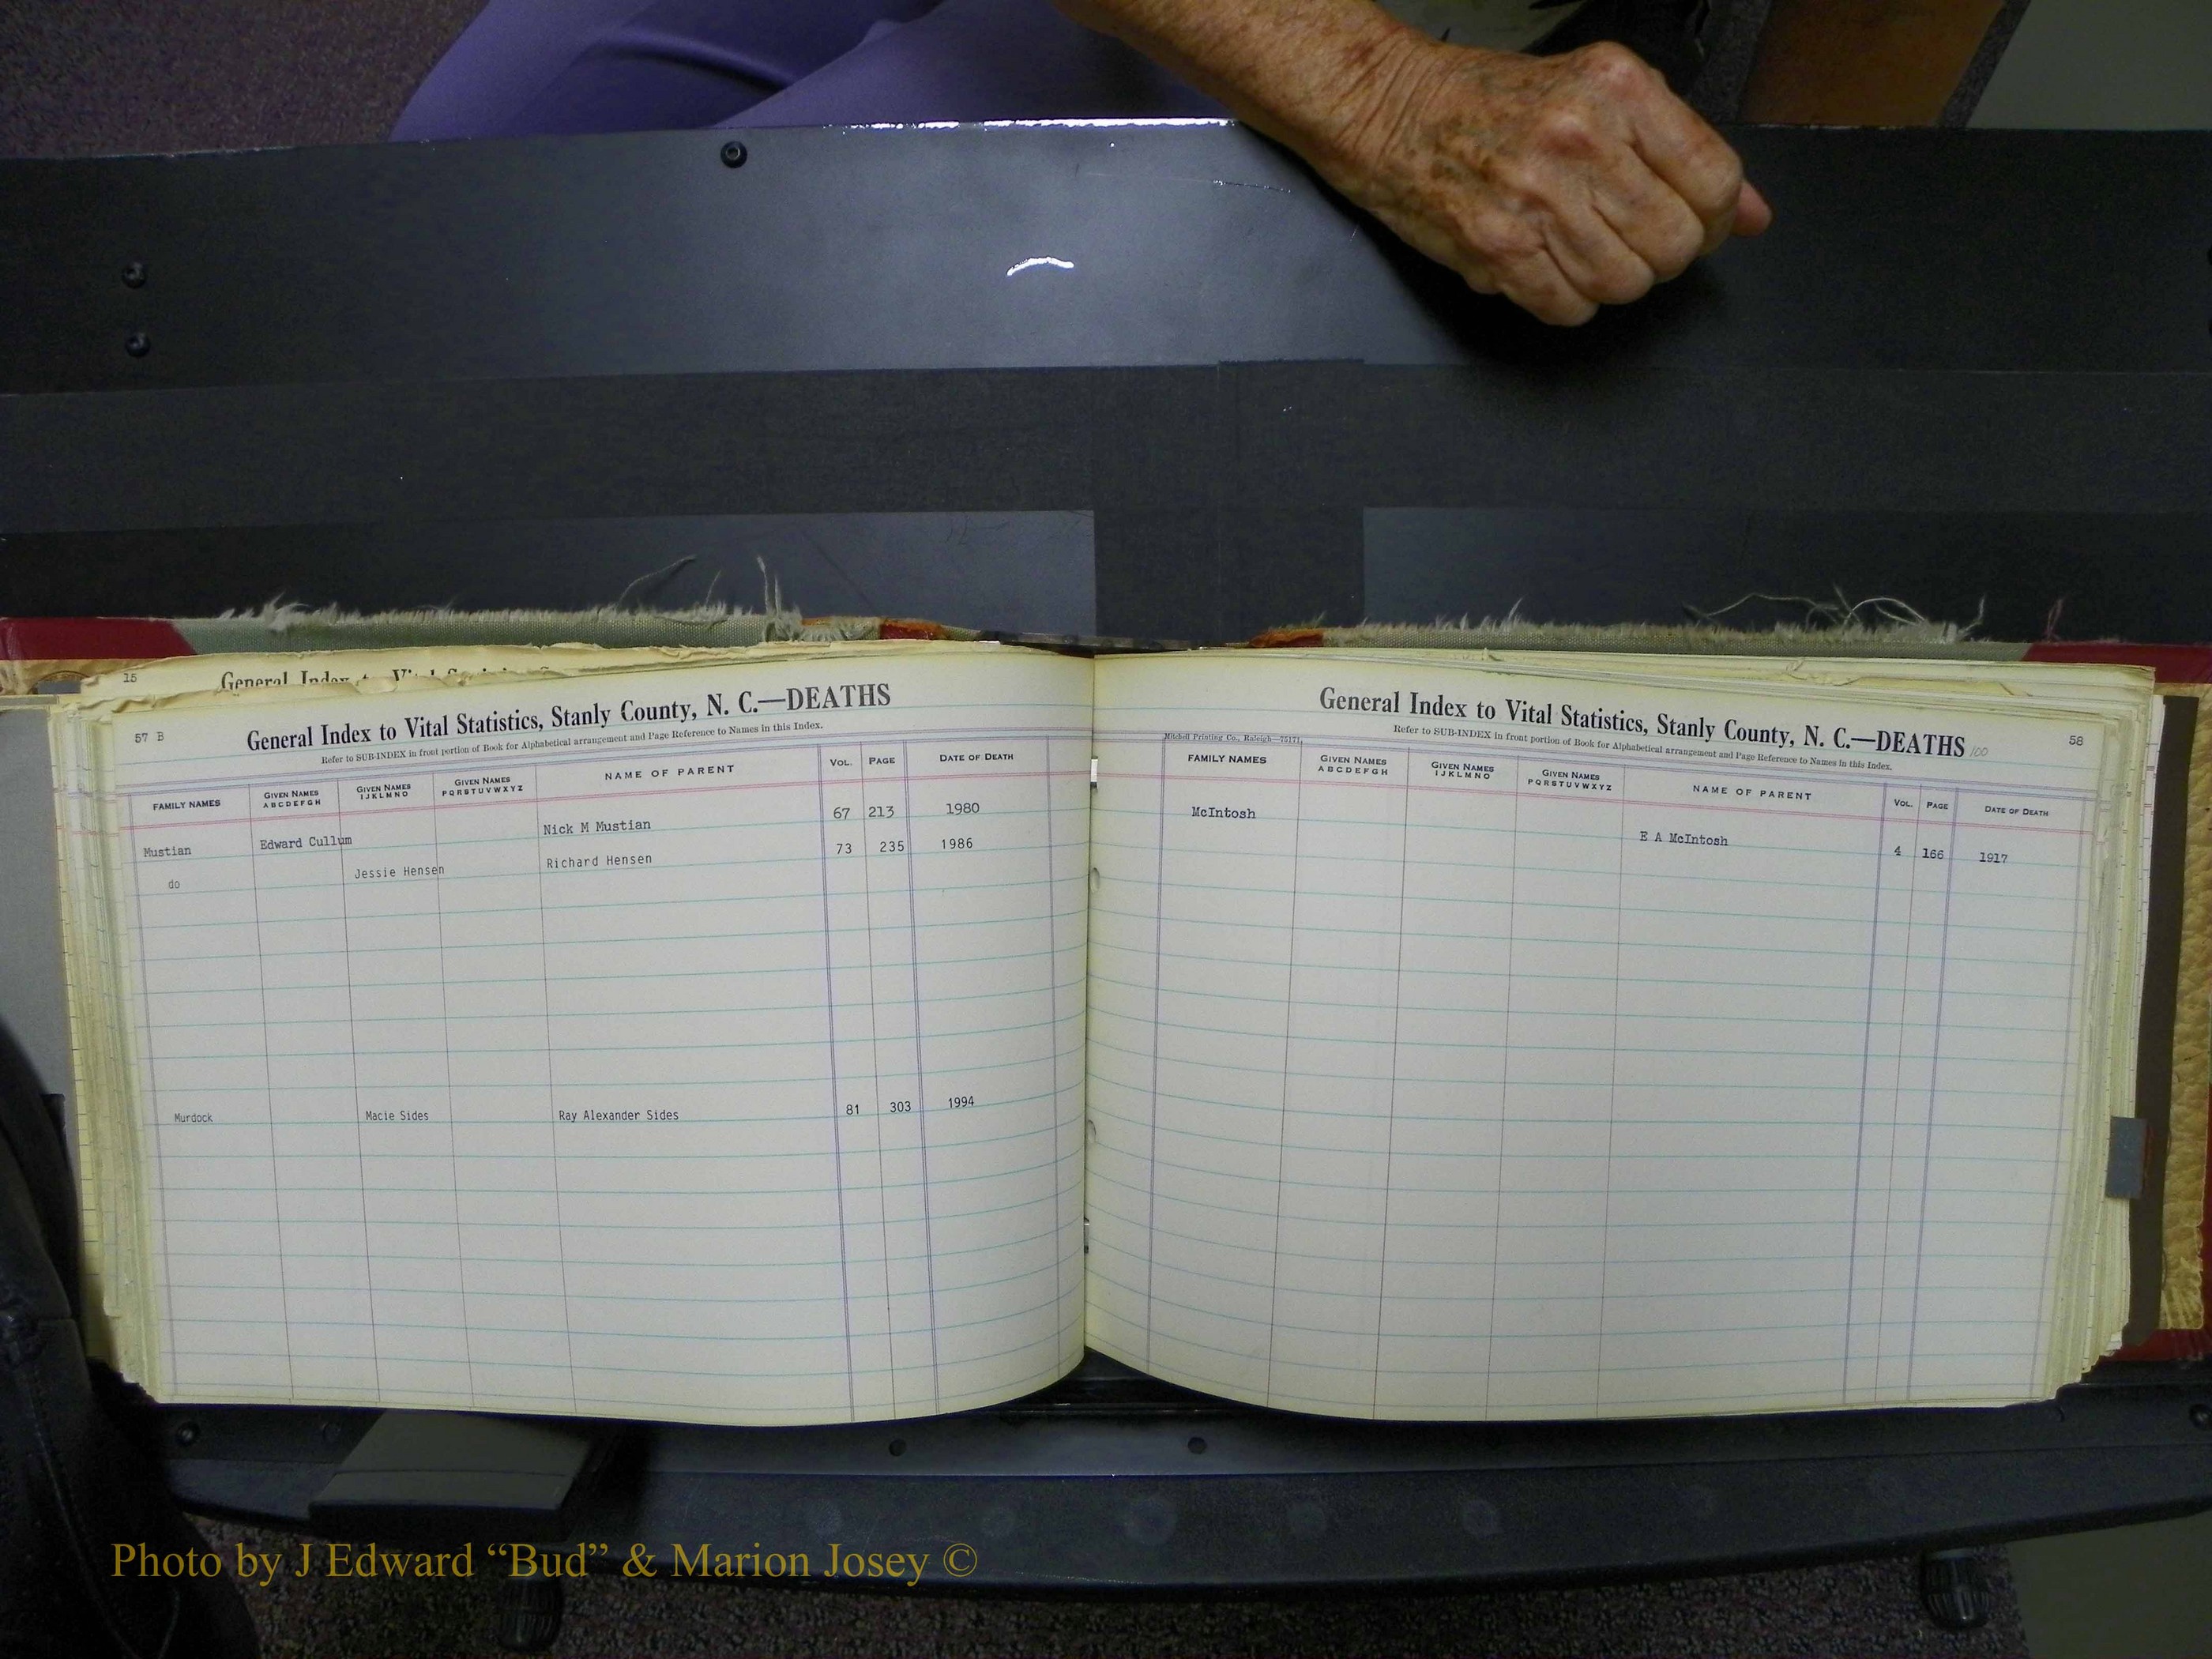 15
General Index to Vital Statistics
57 B
General Index to Vital Statistics, Stanly County, N. C.—DEATHS
Refer to SUB-INDEX in front portion of Book for Alphabetical arrangement and Page Reference to Names in this Index.
FAMILY NAMES GIVEN NAMES ABCDEFGH GIVEN NAMES IJKLMNO GIVEN NAMES PQRSTUVWXYZ NAME OF PARENT VOL. PAGE DATE OF DEATH
Mustian Edward Cullum Nick M Mustian 67 213 1980
do Jessie Hensen Richard Hensen 73 235 1986
Murdock Macie Sides Ray Alexander Sides 81 303 1994
General Index to Vital Statistics, Stanly County, N. C.—DEATHS 100
58
Refer to SUB-INDEX in front portion of Book for Alphabetical arrangement and Page Reference to Names in this Index.
Mitchell Printing Co., Raleigh—75171
FAMILY NAMES GIVEN NAMES ABCDEFGH GIVEN NAMES IJKLMNO GIVEN NAMES PQRSTUVWXYZ NAME OF PARENT VOL. PAGE DATE OF DEATH
McIntosh E A McIntosh 4 166 1917
Photo by J Edward “Bud” & Marion Josey ©